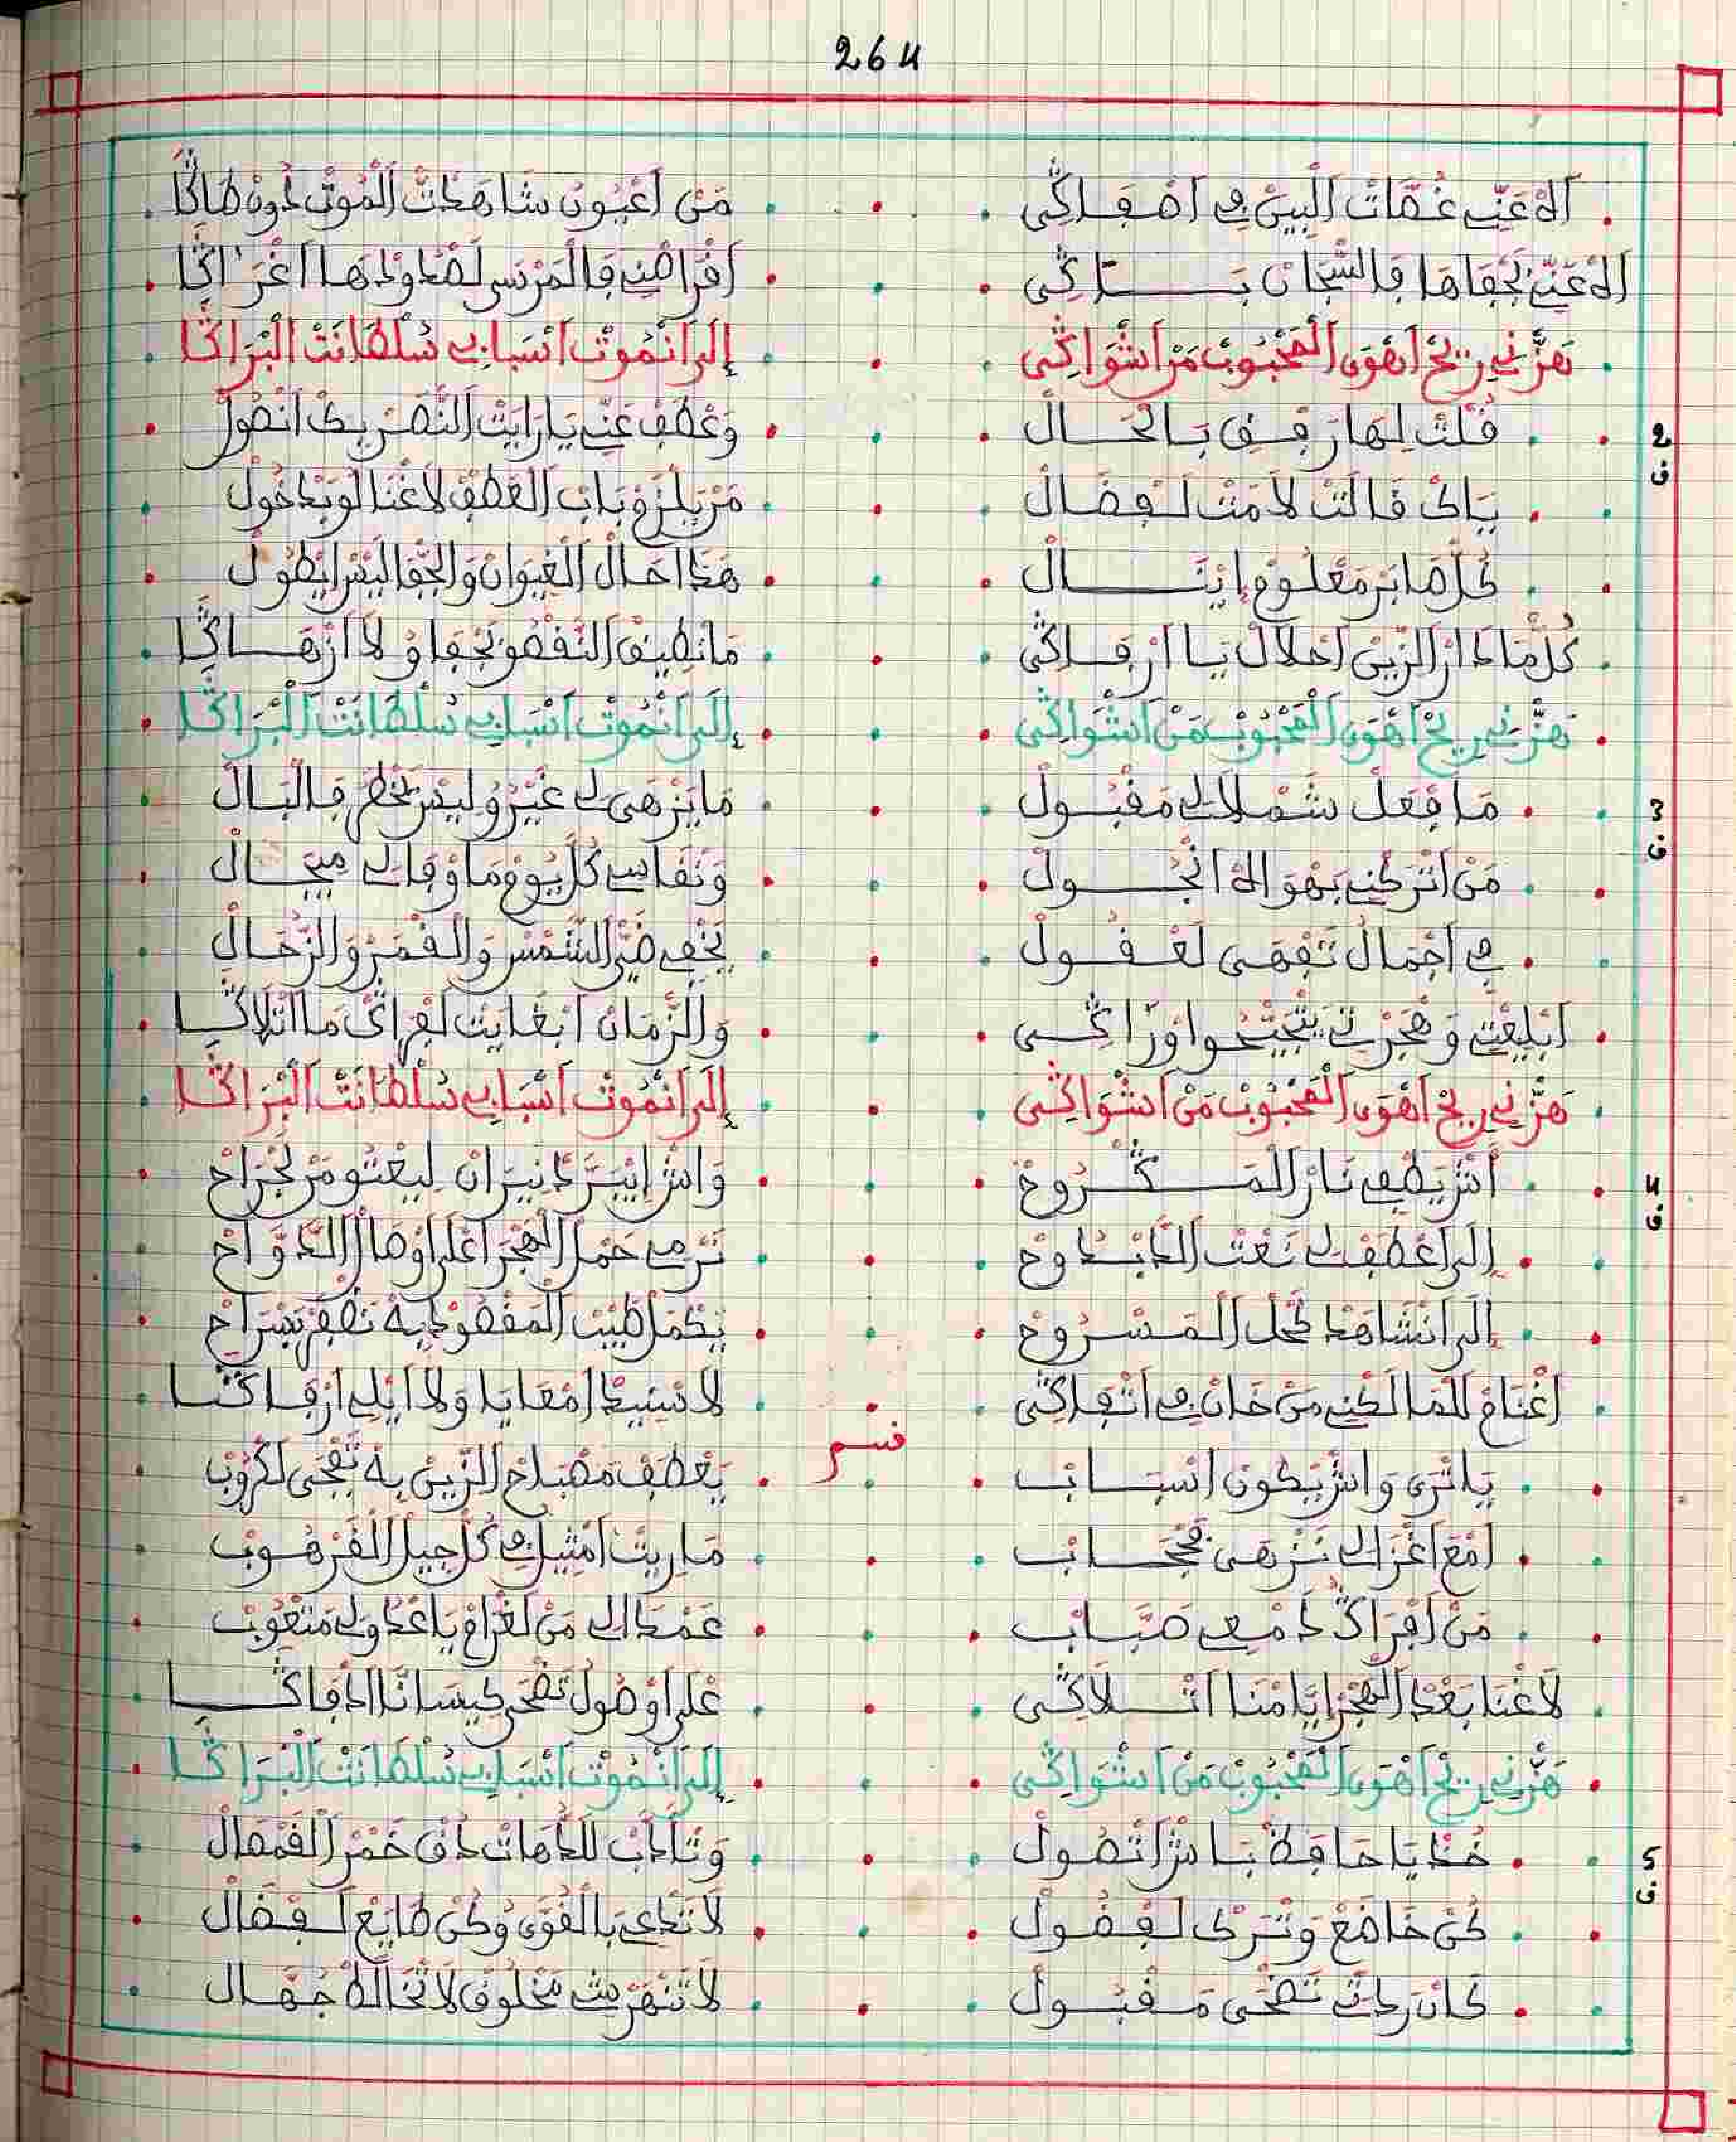 264
اَلاَهْ عَنِّي غُمَّاتْ اَلْبِينْ فِي اَصْفَاكِّي مَنْ اَعْيُونْ شَاهَدْتْ اَلْمُوتْ دُونْ طَاكَّا
اَلاَهْ عَنِّي بَجْفَاهَا فَالسّْجَانْ بَـتَّاكِّي اَفْرَاصْنِي فَالْمَرْسَى لَصْدُودْهَا اَغْرَاكَّا
هَزّْنِي رِيحْ اَهْوَى اَلْمَحْبُوبْ مَنْ اَشْوَاكِّي إِلَى اَنْمُوتْ اَسْبَابِي سُلْطَانَتْ اَلْبْرَاكَّا
2 ف
قُلْتْ لِهَا رَفْقِي بَالْحَـالْ وَعْطَفْ عَنِّي يَا رَايَتْ اَلنّْصَرْ بِكْ اَنْصُولْ
يَاكْ قَالَتْ لاَمَتْ لَفْضَالْ مَنْ يَلْزَمْ بَابْ اَلْعَطْفْ لاَغْنَا لُو يَدْخُولْ
كُلْ صَابَرْ مَعْلُومْ اِينَـالْ هَذَا حَالْ اَلْغِيوَانْ وَالْجْفَا لِيسْ اِيطُولْ
كُلْ مَا دَارْ اَلزِّينْ اَحْلاَلْ يَا اَرْفَاكِّي مَا نْطِيقْ اَلنَّقْصُو بَجْفَاوُ لاَ اَزْهَـاكَّا
هَزّْنِي رِيحْ اَهْوَى اَلْمَحْبُوبْ مَنْ اَشْوَاكِّي إِلَى اَنْمُوتْ اَسْبَابِي سُلْطَانَتْ اَلْبْرَاكَّا
3 ف
مَا فْعَلْ شَمْلاَلِي مَقْبُولْ مَا يَزْهَى لِي غَيْرُو لِيسْ يَخْطَرْ فَالْبَالْ
مَنْ اَتْرَكْنِي بَهْوَاهْ اَنْجُـولْ وَنْقَاسِي كُلْ يُومْ مَا وْفَا لِي مِيجَـالْ
فِي اَجْمَالُ تَفْهَى لَعْقُـولْ يَخْفِي ضَيّْ اَلشَّمْسْ وَالْقْمَرْ وَالزُّحَالْ
اَبْلِيغْتِي وَهْجَرْتِي يَتْجِيحُوا وَرَّاكِّـي وَالزّْمَانْ اَبْغَايَتْ لَفْرَاكْ مَا اَتْلاَكَّـا
هَزّْنِي رِيحْ اَهْوَى اَلْمَحْبُوبْ مَنْ اَشْوَاكِّي إِلَى اَنْمُوتْ اَسْبَابِي سُلْطَانَتْ اَلْبْرَاكَّا
4 ف
اَشْ يَطْفِي نَارْ اَلْمَـكْـرُوحْ وَاشْ اِيبَرَّدْ نِيرَانْ لِيعْتُو مَنْ لَجْرَاحْ
إِلَى اَعْطَفْ لِي نَعْتْ اَلدَّابْـدُوحْ نَرْمِي حَمْلْ اَلْهْجَرْ اَعْلَى اَوْصَالْ اَلدَّوَّاحْ
إِلَى اَنْشَاهَدْ كْحَلْ اَلْمَـسْـرُوحْ يَكْمَلْ طِيبْ اَلْمَقْصُودْ بِهْ نَظْفَرْ بَسْرَاحْ
اَغْنَامْ لَلْمَالَكْنِي مَنْ خَانْ فِي اَتْفَاكِّي لاَ سِيدْ اَمْعَايَا وَلاَ اَيْلِي اَرْفَاكَّـا
قسم
يَا تْرَى وَاشْ يْكُونْ اَسْبَـابْ يَعْطَفْ مَصْبَاحْ اَلزِّينْ بِهْ تَفْجَى لَكْرُوبْ
اَمْعَ اَغْزَالِي نَزْهَى فَحْجَـابْ مَا رِيتْ اَمْثِيلُ فِي كُلْ جِيلْ اَلْقَرْهُـوبْ
مَنْ اَفْرَاكُّ دَمْعِي صَبَّـابْ عَمْدَا لِي مَنْ لَغْرَامْ يَا عْدُولِي مَتْعُوبْ
لاَغْنَا بَعْدْ اَلْهْجَرْ اِيَّامْنَا اَتْـلاَكِّي عْلَى اَوْصُولْ تَضْحَى كِيسَانَّا اَدْفَاكَّـا
هَزّْنِي رِيحْ اَهْوَى اَلْمَحْبُوبْ مَنْ اَشْوَاكِّي إِلَى اَنْمُوتْ اَسْبَابِي سُلْطَانَتْ اَلْبْرَاكَّا
5 ف
خُذْ يَا حَافِظْ بَـاشْ اَتْصُـولْ وَتْأَدَّبْ لَلدُّهَاتْ ذُقْ خَمْرْ اَلْقَمْعَالْ
كُنْ خَاضَعْ وَتْرَكْ لَفْضُـولْ لاَتَدَّعِي بَالْقْوَى وُكُنْ طَايَعْ لَـفْضَالْ
كَانْ رَدْتِي تَضْحَى مَـقْبُـولْ لاَ تَنْهَرْ شِي مَخْلُوقْ لاَ تْخَالَطْ جُهَّـالْ